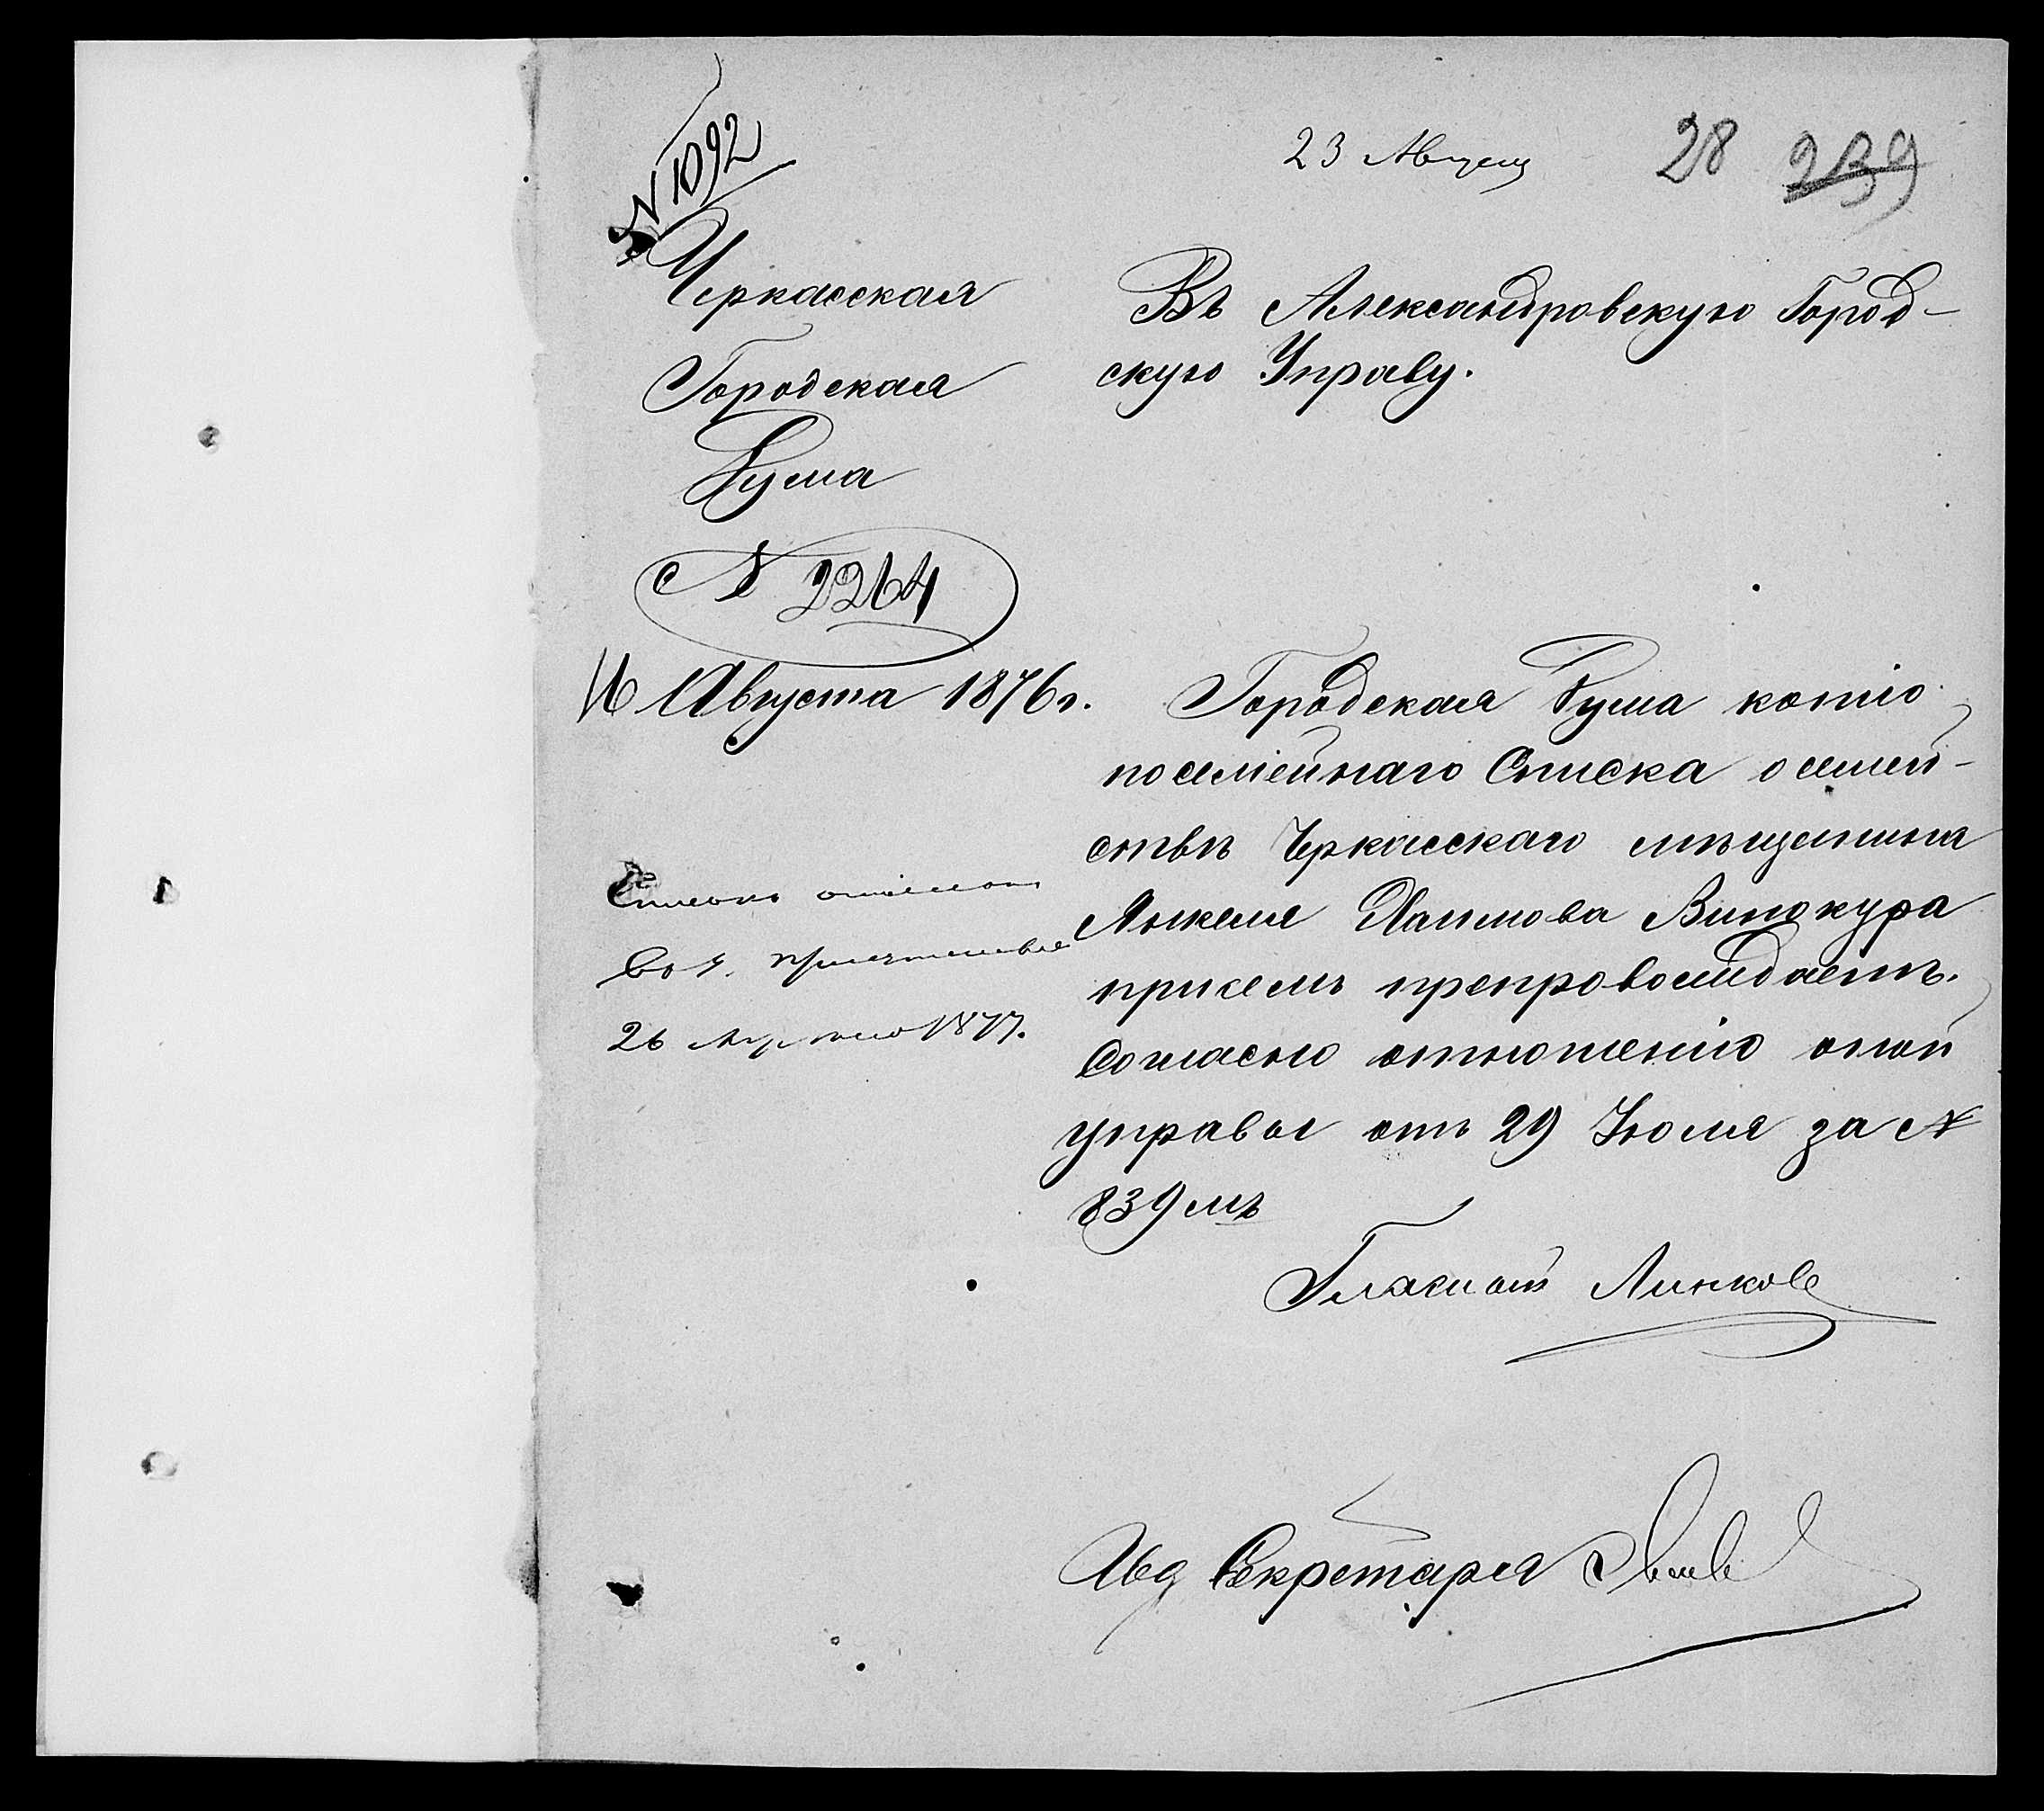 № 1092
23 Августа
28 239
Черкасская
Городская
Дума
№ 2264
16 Августа 1876 г.
Въ Александровскую Город-
скую Управу.
Городская Дума копію
посемейнаго Списка о семей-
ствѣ Черкасскаго мѣщанина
Янкеля Хаимова Винокура
при семъ препровождаетъ.
Согласно отношенію оной
управы отъ 29 Іюля за №
839мъ
Гласный Линковъ
Списокъ
26 1877.
Секретаря